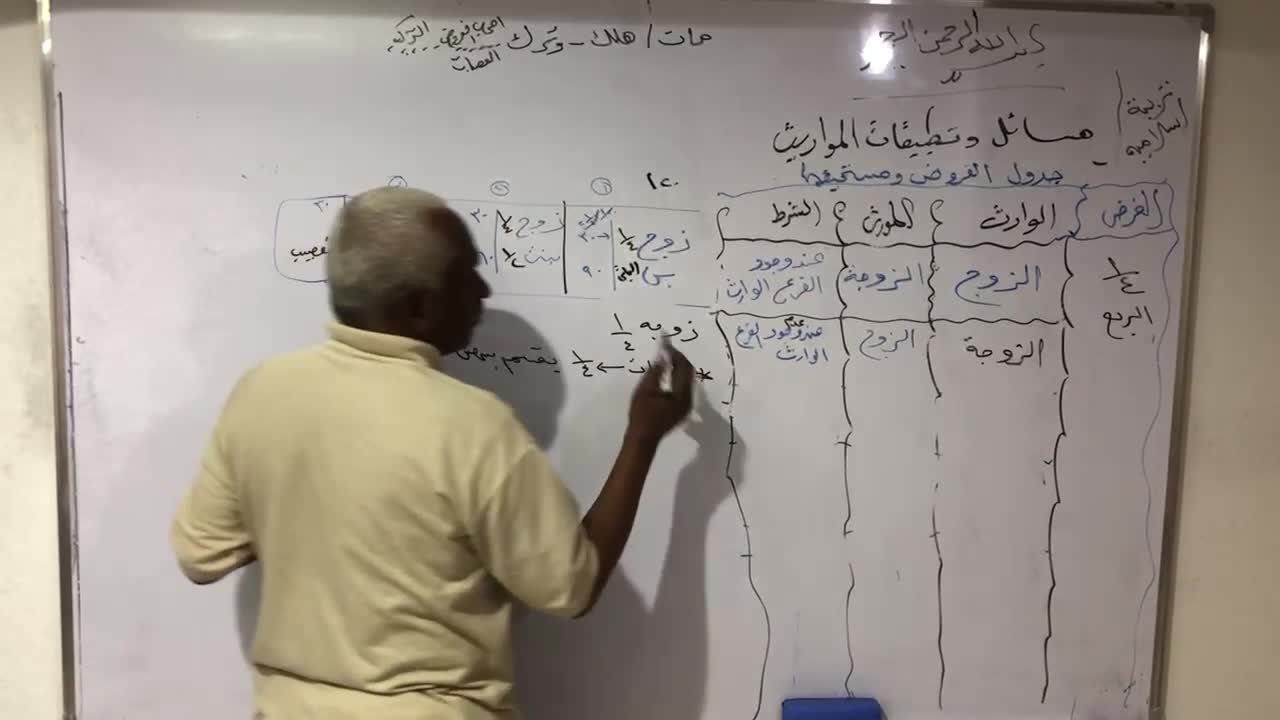 بسم الله الرحمن الرحيم
مات / هلك - وترك أصحاب فروض التركة
العصبات
تربية
اسلامية
مسائل وتطبيقات المواريث
جدول الفروض ومستحقيها
الفرض الوارث المورث الشرط
١/٤ الربع
الزوج الزوجة عند وجود الفرع الوارث
الزوجة الزوج عند عدم وجود الفرع الوارث
١٢٠
زوج ١/٤ ٣٠
ابن الباقي ٩٠
زوج ١/٤ ٣٠
بنت ١/٢
٣٠
زوجة ١/٤
* ← ١/٤ يقسم بينهن